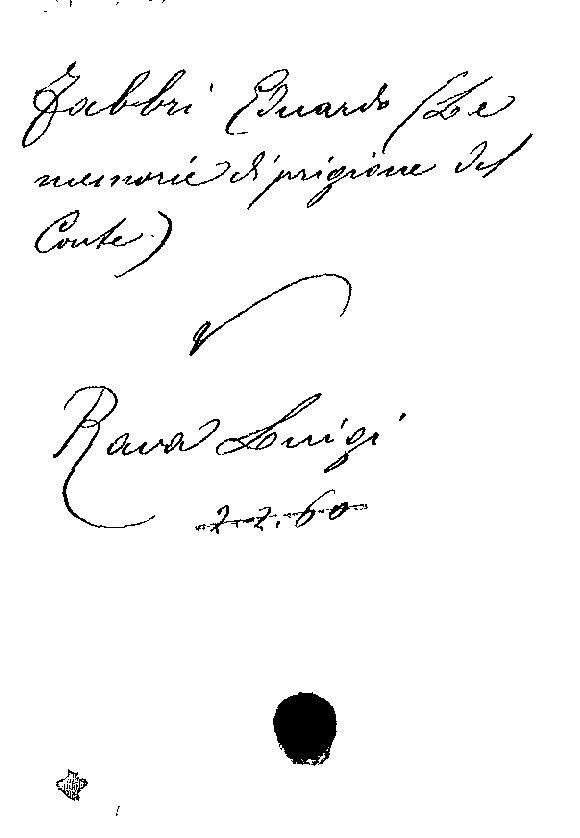 Fabbri Eduardo (Le
memorie di prigione del
Conte.)
Rava Luigi
7.7.60